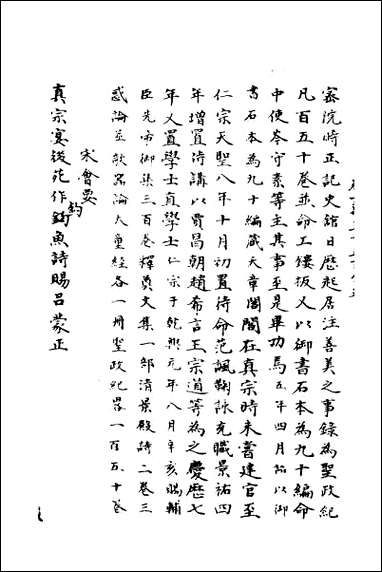 密院時正記史館日歷起居注善美之事錄為聖政紀
凡百五十卷並命工鏤板又以御書石本為九十編命
中使岑守素等主其事至是畢功焉五年四月詔以御
書石本為九十編藏天章閣閣在真宗時未嘗建官至
仁宗天聖八年十月初置待命范諷鞠詠充職景祐四
年增置侍講以賈昌朝趙希言王宗道等為之慶歷七
年又置學士直學士仁宗于乾興元年八月辛亥賜輔
臣先帝御集三百卷釋典文集一部清景殿詩二卷三
惑論並歌器論大童經各一冊聖政紀畧一百五十卷
宋會要
真宗宴後苑作釣魚詩賜呂蒙正
釣